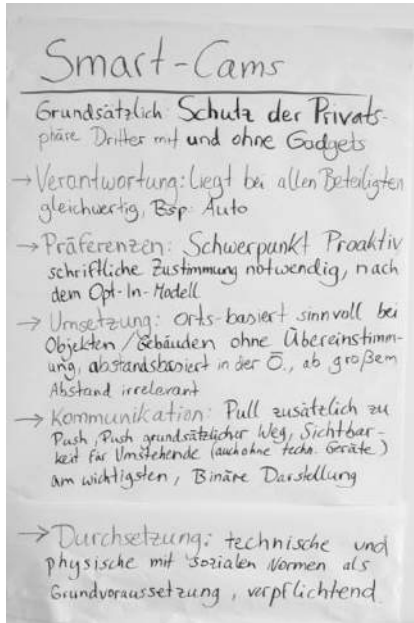 Smart-Cams
Grundsätzlich Schutz der Privats-
phäre Dritter mit und ohne Gadgets
→ Verantwortung: Liegt bei allen Beteiligten
gleichwertig, Bsp. Auto
→ Präferenzen: Schwerpunkt Proaktiv
schriftliche Zustimmung notwendig, nach
dem Opt-In-Modell
→ Umsetzung: Orts-basiert sinnvoll bei
Objekten / Gebäuden ohne Übereinstimm-
ung, abstandsbasiert in der Ö., ab großem
Abstand irrelevant
→ Kommunikation: Pull zusätzlich zu
Push, Push grundsätzlicher Weg, Sichtbar-
keit für Umstehende (auch ohne techn. Geräte)
am wichtigsten, Binäre Darstellung
→ Durchsetzung: technische und
physische mit sozialen Normen als
Grundvoraussetzung, verpflichtend